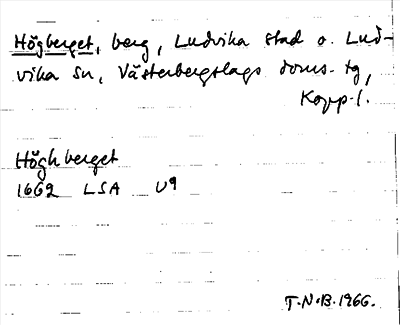 Högberget, berg, Ludvika stad o. Lud-
vika sn, Västerbergslags doms. tg,
Kopp. l.
Högh berget
1662 LSA U9
T.N.B. 1966.